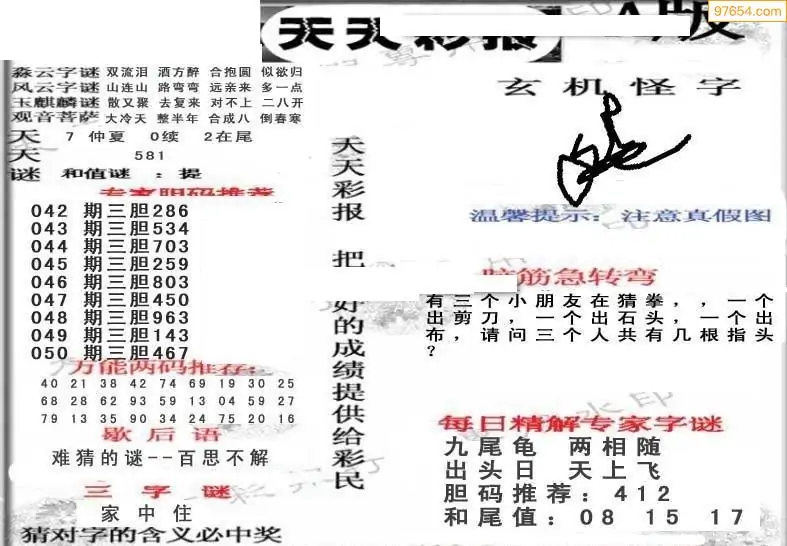 97654.com
天天彩报
版
淼云字谜 双流泪 酒方醉 合抱圆 似欲归
风云字谜 山连山 路弯弯 远亲来 多一点
玉麒麟谜 散又聚 去复来 对不上 二八开
观音菩萨 大冷天 整半年 合成八 倒春寒
天 7 仲夏 0续 2在尾
天 581
谜 和值谜 : 提
专家胆码推荐
042 期三胆286
043 期三胆534
044 期三胆703
045 期三胆259
046 期三胆803
047 期三胆450
048 期三胆963
049 期三胆143
050 期三胆467
万能两码推荐:
40 21 38 42 74 69 19 30 25
68 28 62 93 59 13 04 59 27
79 13 35 90 34 24 75 20 16
歇后语
难猜的谜--百思不解
三字谜
家中住
猜对字的含义必中奖
天天彩报 把好的成绩提供给彩民
玄机怪字
温馨提示: 注意真假图
脑筋急转弯
有三个小朋友在猜拳，，一个
出剪刀，一个出石头，一个出
布，请问三个人共有几根指头
？
每日精解专家字谜
九尾龟 两相随
出头日 天上飞
胆码推荐: 412
和尾值: 08 15 17